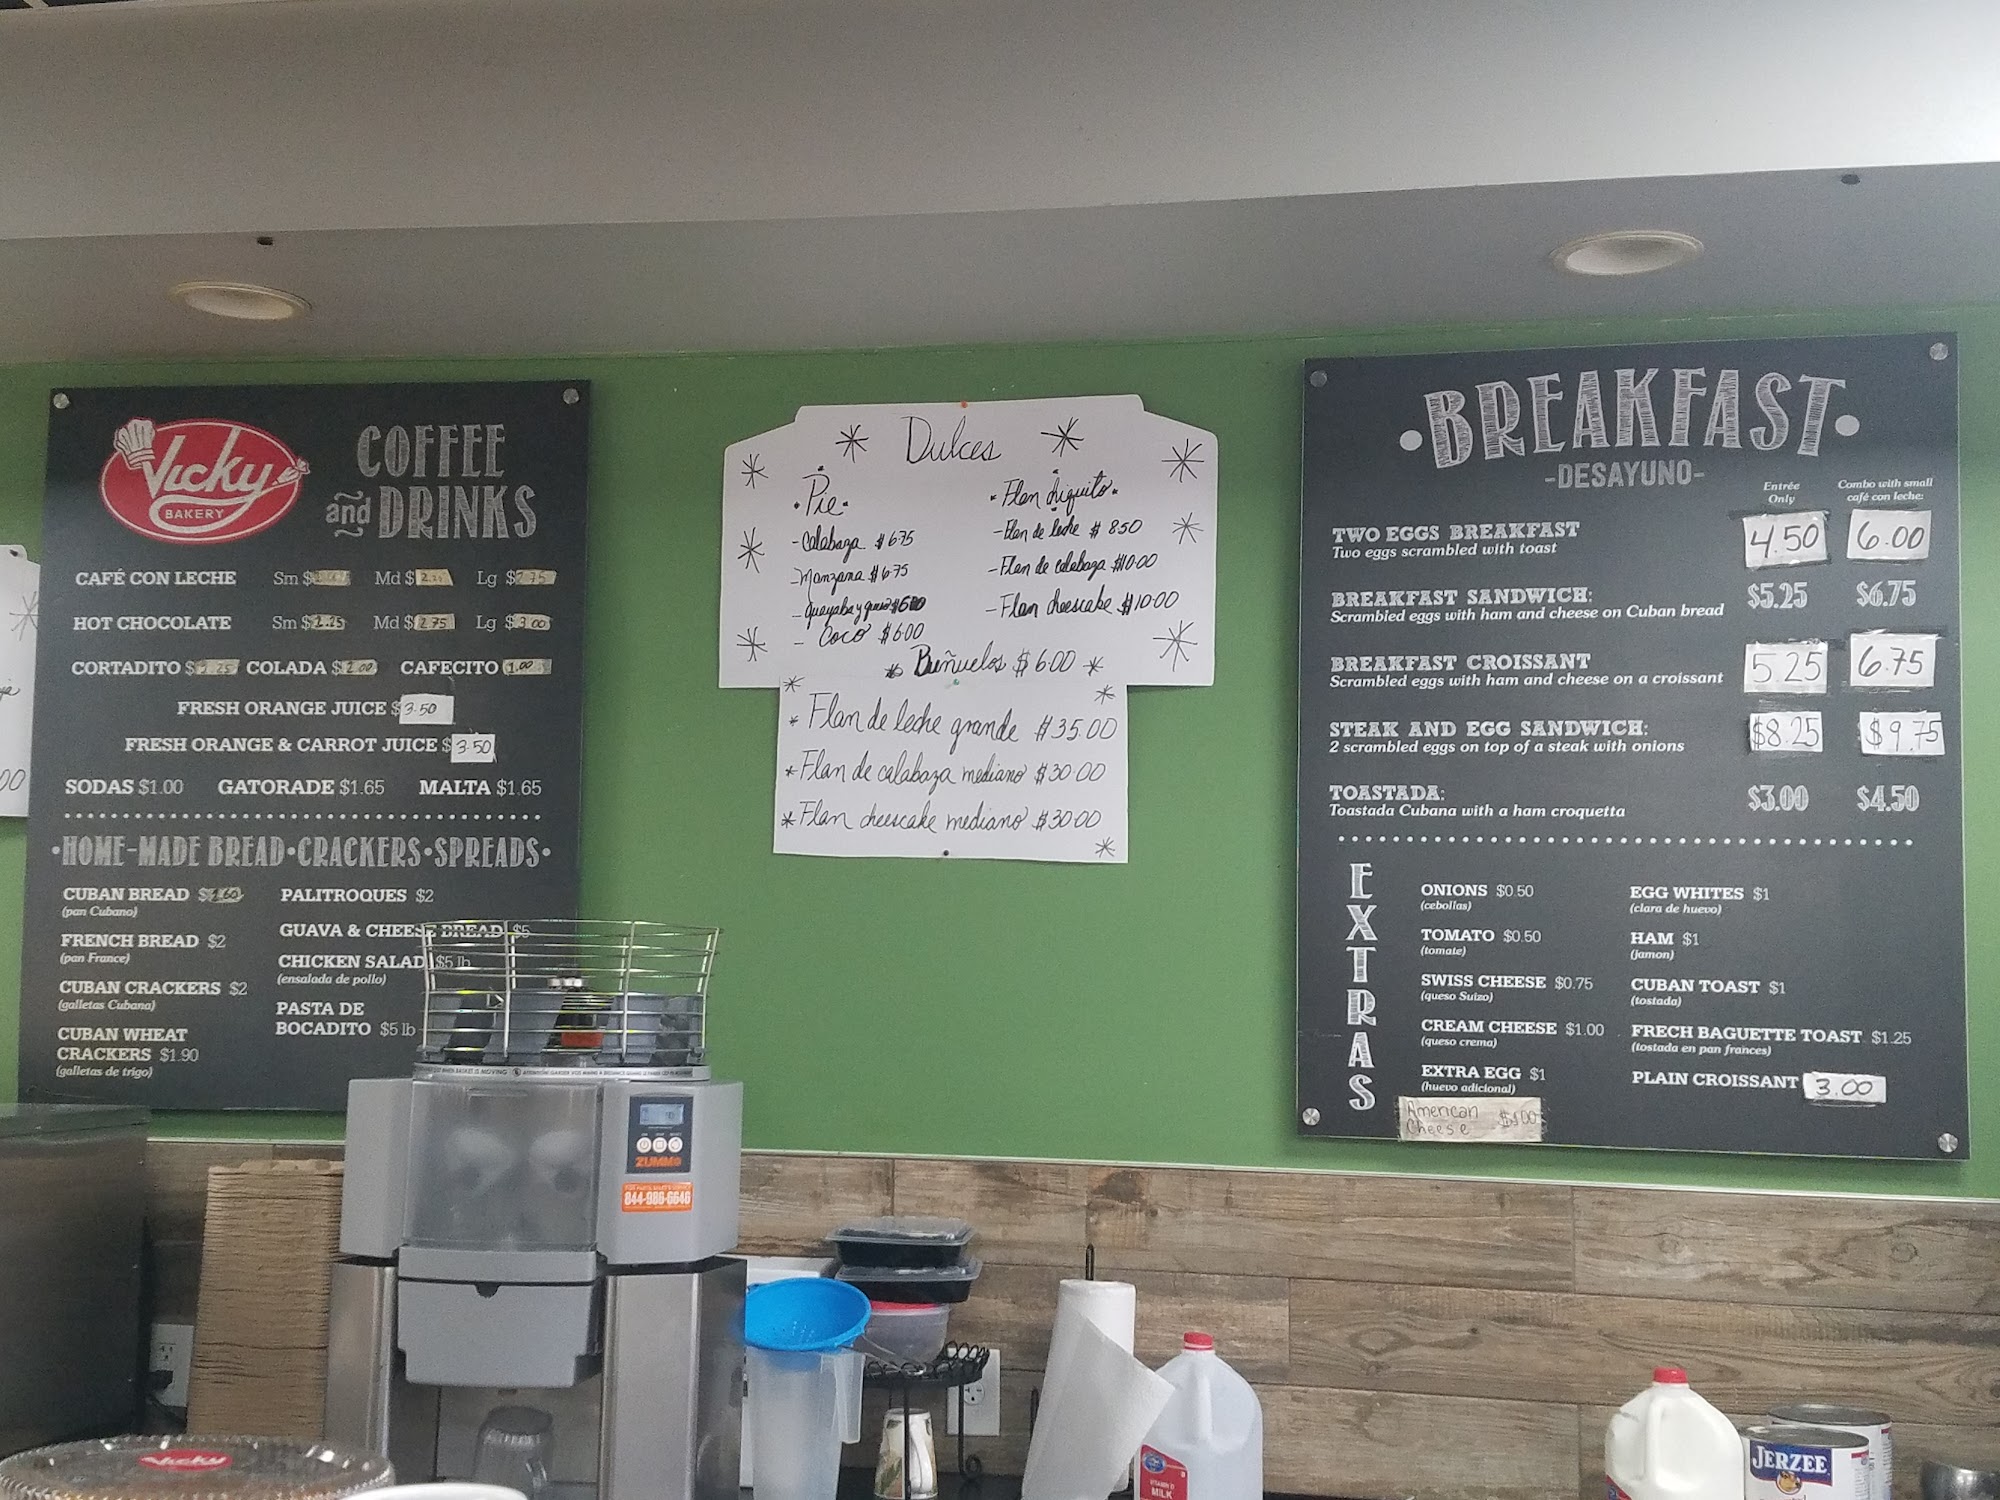 Vicky
BAKERY
COFFEE
and DRINKS
CAFÉ CON LECHE Sm $ Md $ Lg $
HOT CHOCOLATE Sm $2.25 Md $2.75 Lg $3.00
CORTADITO $2.25 COLADA $2.00 CAFECITO 1.00
FRESH ORANGE JUICE $3.50
FRESH ORANGE & CARROT JUICE $3.50
SODAS $1.00 GATORADE $1.65 MALTA $1.65
•HOME-MADE BREAD•CRACKERS•SPREADS•
CUBAN BREAD
(pan Cubano)
FRENCH BREAD $2
(pan France)
CUBAN CRACKERS $2
(galletas Cubana)
CUBAN WHEAT
CRACKERS $1.90
(galletas de trigo)
PALITROQUES $2
GUAVA & CHEESE BREAD $5
CHICKEN SALAD $5 lb
(ensalada de pollo)
PASTA DE
BOCADITO $5 lb
Dulces
•Pie•
-Calabaza $6.75
-Manzana $6.75
-guayaba y queso $6.00
- Coco $6.00
•Flan chiquito•
-Flan de leche $8.50
-Flan de calabaza $10.00
-Flan cheescake $10.00
Buñuelos $6.00
Flan de leche grande $35.00
Flan de calabaza mediano $30.00
Flan cheescake mediano $30.00
•BREAKFAST•
-DESAYUNO-
Entrée Only
Combo with small café con leche:
TWO EGGS BREAKFAST 4.50 6.00
Two eggs scrambled with toast
BREAKFAST SANDWICH: $5.25 $6.75
Scrambled eggs with ham and cheese on Cuban bread
BREAKFAST CROISSANT 5.25 6.75
Scrambled eggs with ham and cheese on a croissant
STEAK AND EGG SANDWICH: $8.25 $9.75
2 scrambled eggs on top of a steak with onions
TOASTADA: $3.00 $4.50
Toastada Cubana with a ham croquetta
EXTRAS
ONIONS $0.50
(cebollas)
TOMATO $0.50
(tomate)
SWISS CHEESE $0.75
(queso Suizo)
CREAM CHEESE $1.00
(queso crema)
EXTRA EGG $1
(huevo adicional)
American
Cheese $1.00
EGG WHITES $1
(clara de huevo)
HAM $1
(jamon)
CUBAN TOAST $1
(tostada)
FRECH BAGUETTE TOAST $1.25
(tostada en pan frances)
PLAIN CROISSANT 3.00
ZUMMO
844-986-6646
Vicky
VITAMIN D
MILK
JERZEE